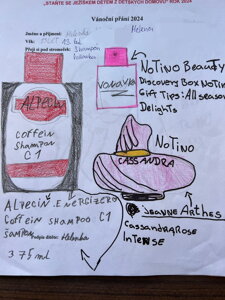 „STAŇTE SE JEŽÍŠKEM DĚTEM Z DĚTSKÝCH DOMOVŮ" ROK 2024
Vánoční přání 2024
Jméno a příjmení:
Helena
Věk:
13 let
Přeji si pod stromeček: Shampon
ALPECIN
coffein
shampon
C1
VOŇAVKA
NOTINO Beauty
Discovery Box NOTINO
Gift Tips: All season
Delights
NOTINO
CASSANDRA
JEANNE ARTHES
CASSANDRA ROSE
INTENSE
ALPECIN ENERGIZER
COFFEIN SHAMPOO C1
ŠAMPON
Podpis dítěte: Helenka
375 ml